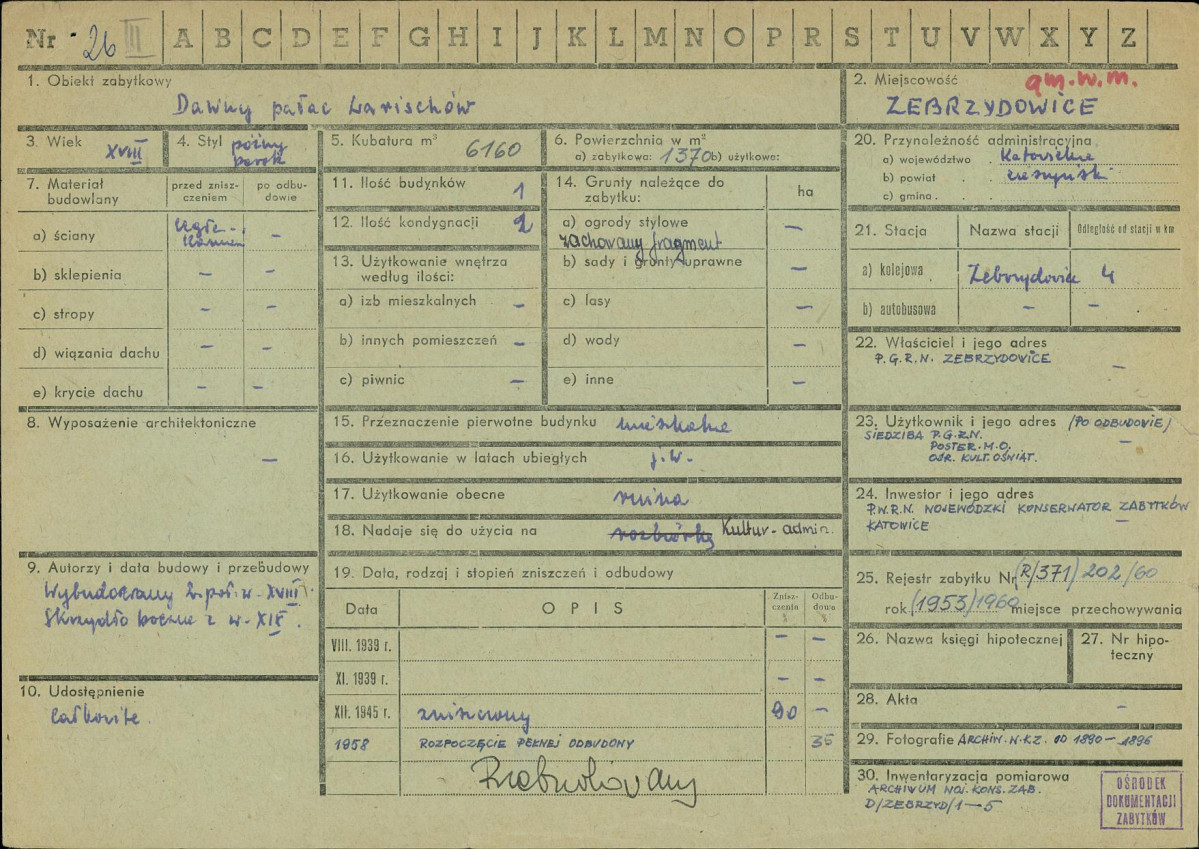 Nr 26 III A B C D E F G H I J K L M N O P R S T U V W X Y Z
1. Obiekt zabytkowy
Dawny pałac Larischów
2. Miejscowość gm.w.m.
ZEBRZYDOWICE
3. Wiek XVIII
4. Styl późny barok
5. Kubatura m³ 6160
6. Powierzchnia w m²
a) zabytkowa: 1370 b) użytkowa:
20. Przynależność administracyjna
a) województwo Katowickie
b) powiat cieszyński
c) gmina
7. Materiał budowlany
przed zniszczeniem
po odbudowie
a) ściany cegła - kamień -
b) sklepienia - -
c) stropy - -
d) wiązania dachu - -
e) krycie dachu - -
11. Ilość budynków 1
12. Ilość kondygnacji 2
13. Użytkowanie wnętrza według ilości:
a) izb mieszkalnych -
b) innych pomieszczeń -
c) piwnic -
14. Grunty należące do zabytku: ha
a) ogrody stylowe -
zachowany fragment
b) sady i grunty uprawne -
c) lasy -
d) wody -
e) inne -
21. Stacja Nazwa stacji Odległość od stacji w km
a) kolejowa Zebrzydowice 4
b) autobusowa - -
22. Właściciel i jego adres
P.G.R.N. ZEBRZYDOWICE -
8. Wyposażenie architektoniczne
-
15. Przeznaczenie pierwotne budynku mieszkalne
16. Użytkowanie w latach ubiegłych j.w.
17. Użytkowanie obecne ruina
18. Nadaje się do użycia na rozbiórkę Kultur.-admin.
23. Użytkownik i jego adres /PO ODBUDOWIE/
SIEDZIBA P.G.R.N. -
POSTER. M.O.
OŚR. KULT. OŚWIAT.
24. Inwestor i jego adres
P.W.R.N. WOJEWÓDZKI KONSERWATOR ZABYTKÓW
KATOWICE -
9. Autorzy i data budowy i przebudowy
Wybudowany 2 poł. w. XVIII.
Skrzydło boczne z w. XIX.
19. Data, rodzaj i stopień zniszczeń i odbudowy
Data OPIS Zniszczenia Odbudowa
VIII. 1939 r. - -
XI. 1939 r. - -
XII. 1945 r. zniszczony 90 -
1958 ROZPOCZĘCIE PEŁNEJ ODBUDOWY 35
25. Rejestr zabytku Nr (R/371) 202/60
rok (1953) 1960 miejsce przechowywania
26. Nazwa księgi hipotecznej
27. Nr hipoteczny
10. Udostępnienie
całkowite.
28. Akta -
29. Fotografie ARCHIW. W.K.Z. OD 1890-1896
30. Inwentaryzacja pomiarowa
ARCHIWUM WOJ. KONS. ZAB.
D/ZEBRZYD/1-5
OŚRODEK
DOKUMENTACJI
ZABYTKÓW